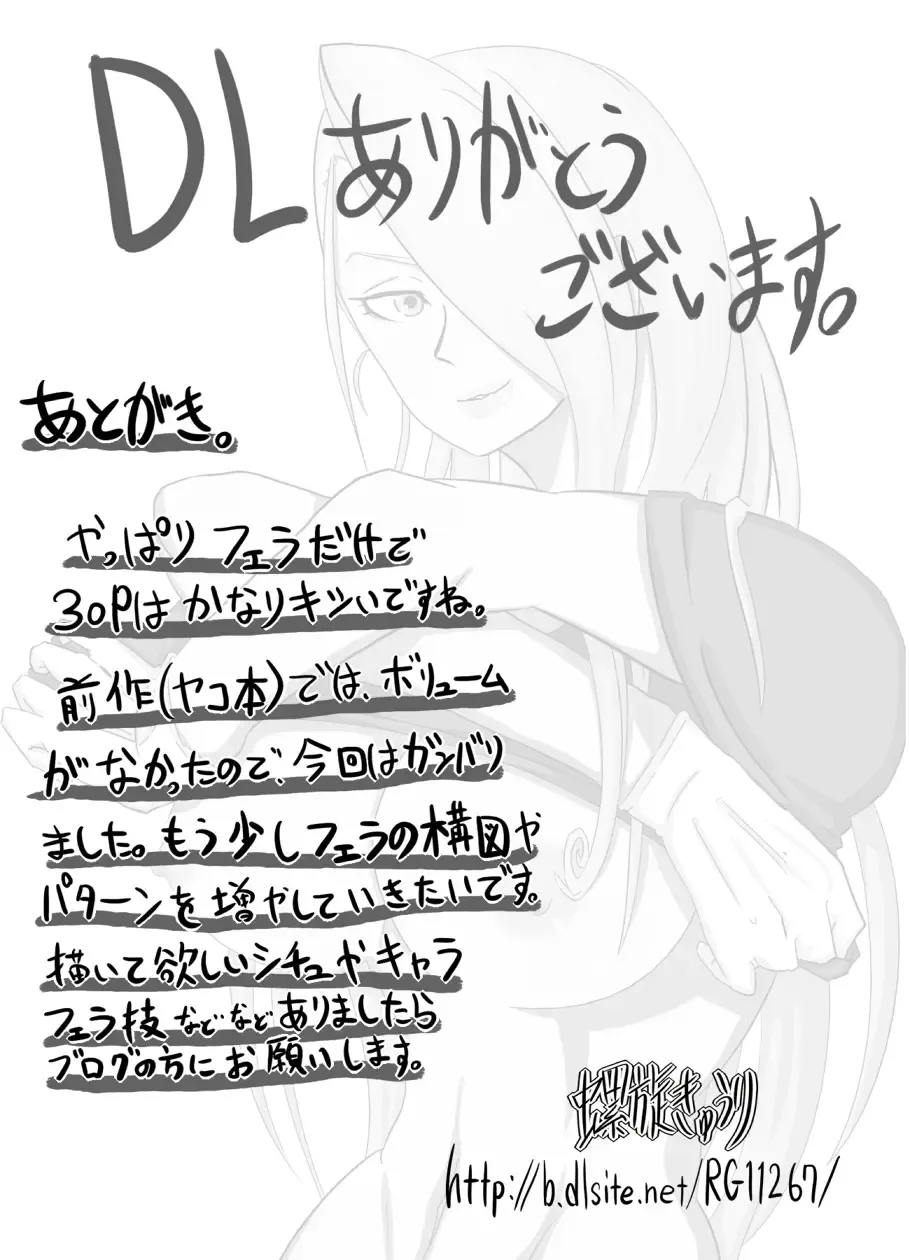 DLありがとう
ございます。
あとがき。
やっぱりフェラだけで
30Pはかなりキツいですね。
前作(ヤコ本)では、ボリューム
がなかったので、今回はガンバリ
ました。もう少しフェラの構図や
パターンを増やしていきたいです。
描いて欲しいシチュやキャラ
フェラ技などなどありましたら
ブログの方にお願いします。
螺旋きゅうり
http://b.dlsite.net/RG11267/